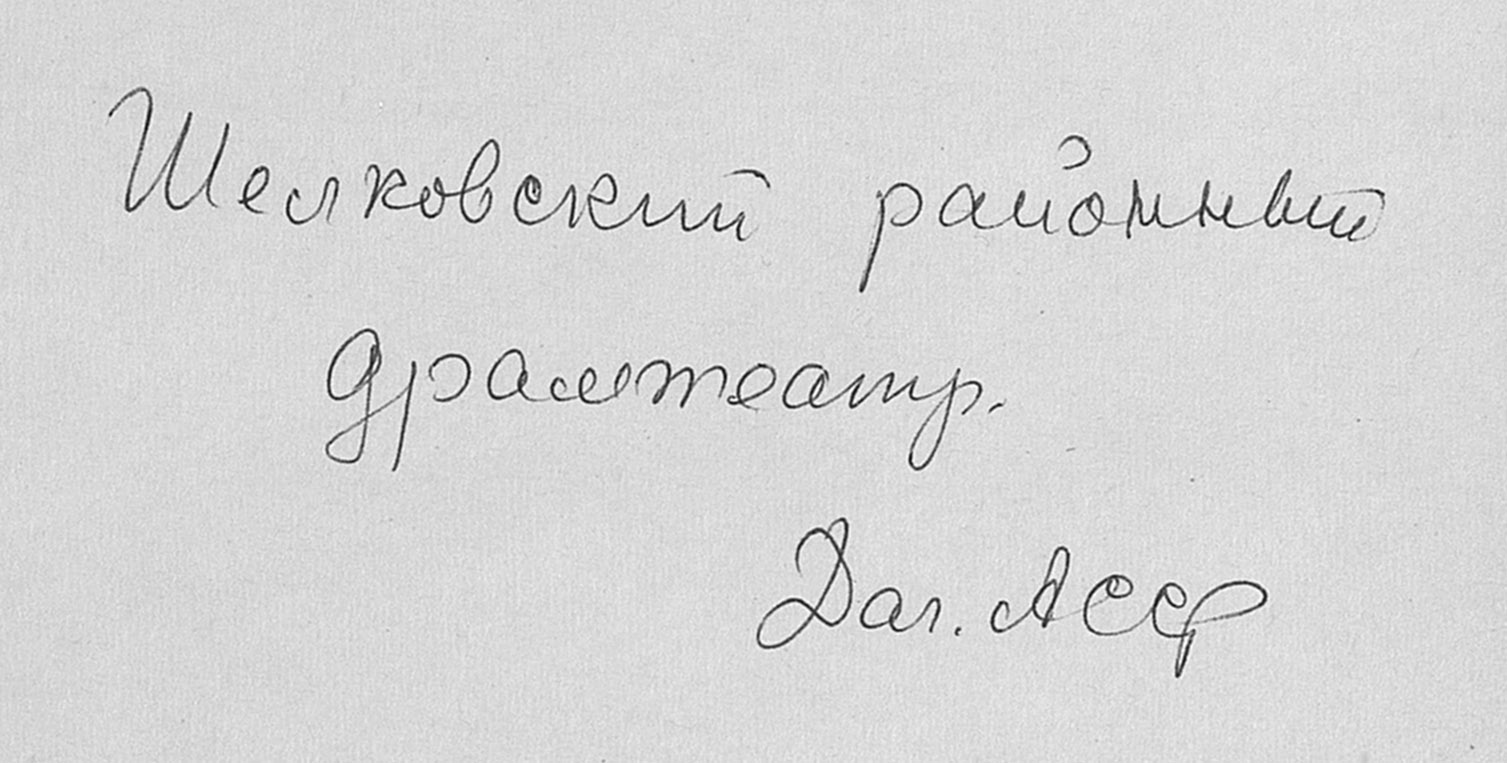 Шелковский районный
драмтеатр.
Даг. АССР